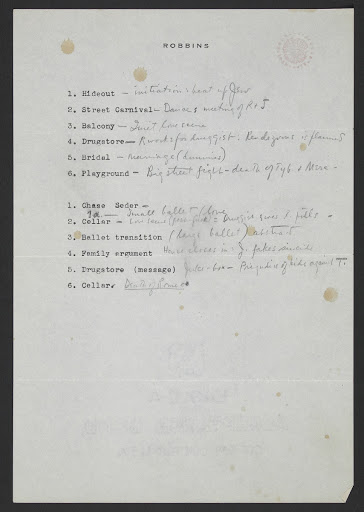 ROBBINS
1. Hideout — initiation: beat up Jew
2. Street Carnival — Dances meeting of R + J
3. Balcony — Duet love scene
4. Drugstore — druggist: Rendezvous is planned
5. Bridal — marriage (dummies)
6. Playground — Big street fight — death of Tyb + Merc -
1. Chase Seder —
1a. — Small ballet
2. Cellar — Love scene gives J. pills -
3. Ballet transition (large ballet) abstract
4. Family argument J. fakes suicide
5. Drugstore (message) Juke-box — Prejudice of kids against T.
6. Cellar. Death of Romeo